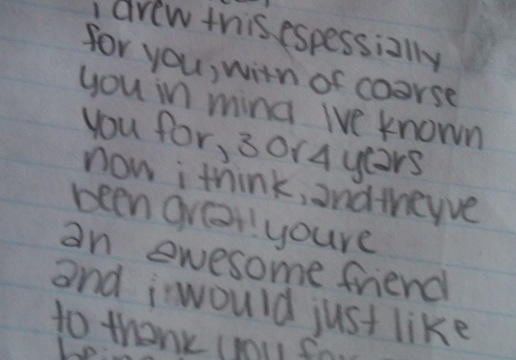 i drew this, espessially
for you, with of coarse
you in mind ive known
you for, 3 or 4 years
now i think, and theyve
been great! youre
an awesome friend
and i would just like
to thank you for
being